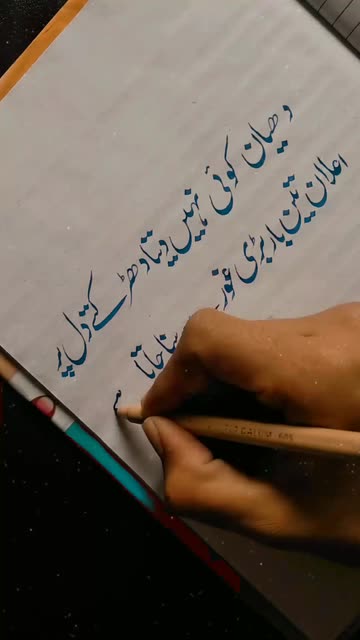 دھیان کوئی نہیں دیتا دھڑکتے دل پر
اعلان تین بار بڑی غور سنا جاتا